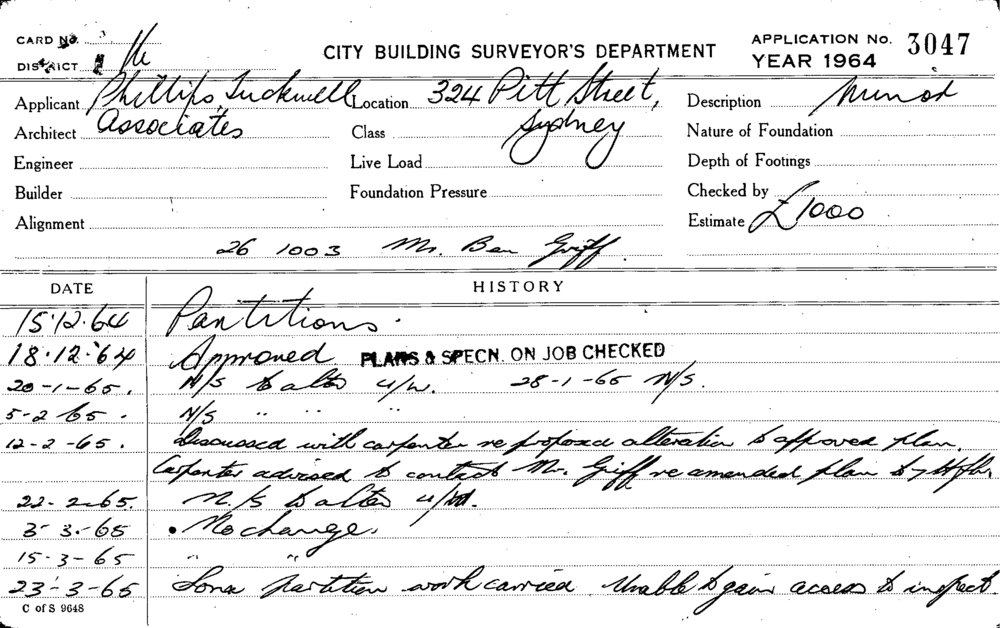 CARD No.
DISTRICT
CITY BUILDING SURVEYOR'S DEPARTMENT
APPLICATION No. 3047
YEAR 1964
Applicant Phillips, Tuckwell Location 324 Pitt Street, Description Minor
Architect Associates Class Sydney Nature of Foundation
Engineer Live Load Depth of Footings
Builder Foundation Pressure Checked by
Alignment Estimate £1000
26 1003 Mr. Ben Griff.
DATE HISTORY
15.12.64 Partitions.
18.12.64 Approved PLANS & SPECN. ON JOB CHECKED
20-1-65. N/S u/w. 28-1-65 N/S.
5-2-65. N/S " " "
12-2-65. Discussed with carpenter re proposed alteration to approved plan.
Carpenter advised to contact Mr. Griff re amended plan by
22-2-65. N/S
3-3-65 No change.
15-3-65 " "
23-3-65 Some partition work carried Unable to gain access to inspect.
C of S 9648